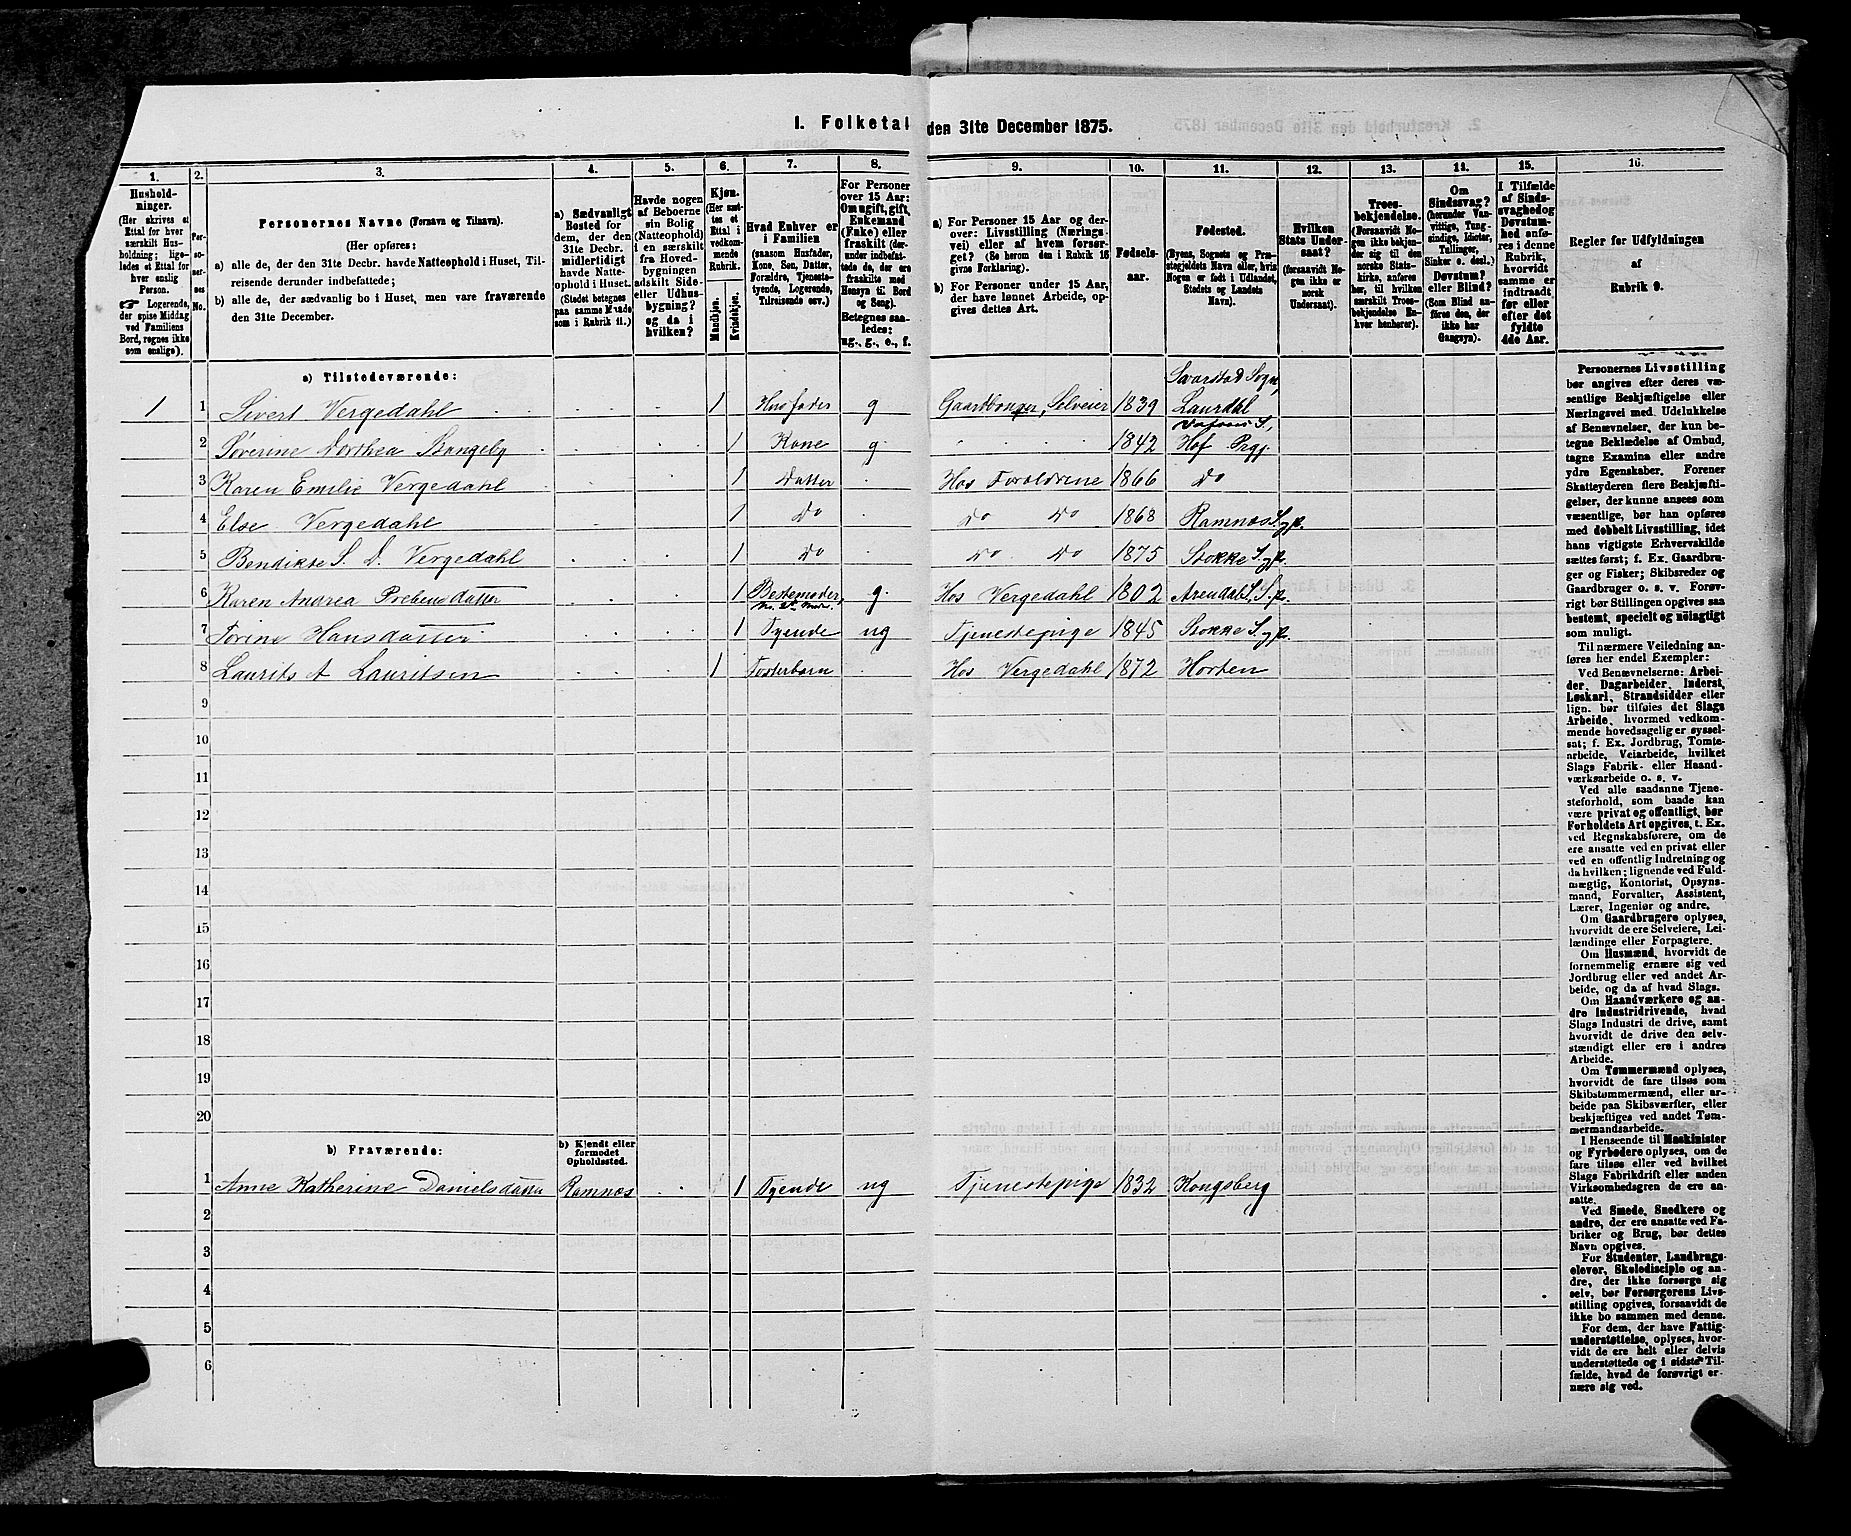 I. Folketal den 31te December 1875.
1. 2. 3. 4. 5. 6. 7. 8. 9. 10. 11. 12. 13. 14. 15. 16.
Hushold-
ninger.
(Her skrives et
Ettal for hver
særskilt Hus-
holdning; lige-
ledes et Ettal for
hver enslig
Person.
Logerende,
der spise Middag
ved Familiens
Bord, regnes ikke
som enslige).
Per-
soner-
nes
No.
Personernes Navne (Fornavn og Tilnavn).
(Her opføres:
a) alle de, der den 31te Decbr. havde Natteophold i Huset, Til-
reisende derunder indbefattede;
b) alle de, der sædvanlig bo i Huset, men vare fraværende
den 31te December.
a) Sædvanligt
Bosted for
dem, der den
31te Decbr.
midlertidigt
havde Natte-
ophold i Huset.
(Stedet betegnes
paa samme Maade
som i Rubrik 11.)
Havde nogen
af Beboerne
sin Bolig
(Natteophold)
i en særskilt
fra Hoved-
bygningen
adskilt Side-
eller Udhus-
bygning?
og da i
hvilken?
Kjøn.
(Her sæt-
tes et
Ettal i
vedkom-
mende
Rubrik.
Mandkjøn.
Kvindekjøn.
Hvad Enhver er
i Familien
(saasom Husfader,
Kone, Søn, Datter,
Forældre, Tjeneste-
tyende, Logerende,
Tilreisende osv.)
For Personer
over 15 Aar:
Om ugift, gift,
Enkemand
(Enke) eller
fraskilt (der-
under indbefat-
tede de, der ere
fraskilte med
Hensyn til Bord
og Seng).
Betegnes saa-
ledes:
ug., g., e., f.
a) For Personer 15 Aar og der-
over: Livsstilling (Nærings-
vei) eller af hvem forsør-
get? (Se herom den i Rubrik 16
givne Forklaring).
b) For Personer under 15 Aar,
der have lønnet Arbeide, op-
gives dettes Art.
Fødsels-
aar.
Fødested.
(Byens, Sognets og Præ-
stegjeldets Navn eller, hvis
Nogen er født i Udlandet,
Stedets og Landets
Navn).
Hvilken
Stats Under-
saat?
(forsaavidt No-
gen ikke er
norsk
Undersaat).
Troes-
bekjendelse.
(Forsaavidt No-
gen ikke bekjen-
der sig til den
norske Stats-
kirke, anføres
her, til hvilken
særskilt Troes-
bekjendelse En-
hver henhører).
Om
Sindssvag?
(herunder Van-
vittige, Tung-
sindige, Idioter,
Tullinger,
Sinker o. desl.)
Døvstum?
eller Blind?
(Som Blind an-
føres den, der
ikke har
Gangsyn).
I Tilfælde
af Sinds-
svaghed og
Døvstum-
hed anfø-
res i denne
Rubrik,
hvorvidt
samme er
indtraadt
før eller
efter det
fyldte
4de Aar.
Regler for Udfyldningen
af
Rubrik 9.
a) Tilstedeværende:
1 1 Sivert Vergedahl 1 Husfader g Gaardbruger, Selveier 1839 Svarstad Sogn, Laurdal
2 Søverine Dorthea Stangeby 1 Kone g 1842 Hof Prgj.
3 Karen Emilie Vergedahl 1 Datter Hos Foraldrene 1866 do
4 Else Vergedahl 1 do do do 1868 Ramnæs S. g p.
5 Bendikte S. D. Vergedahl 1 do do do 1875 Stokke S. g p.
6 Karen Andrea Prebensdatter 1 Bestemoder, g. Hos Vergedahl 1802 Arendal S, S. p.
7 Torine Hansdatter 1 Tyende ug Tjenestepige 1845 Stokke S. g p.
8 Laurits A Lauritsen 1 Fosterbarn Hos Vergedahl 1872 Horten
9
10
11
12
13
14
15
16
17
18
19
20
b) Fraværende:
b) Kjendt eller
formodet
Opholdssted.
1 Anne Katherine Danielsdatter Ramnæs 1 Tyende ug Tjenestepige 1832 Kongsberg
2
3
4
5
6
Personernes Livsstilling
bør angives efter deres væ-
sentlige Beskjæftigelse eller
Næringsvei med Udelukkelse
af Benævnelser, der kun be-
tegne Beklædelse af Ombud,
tagne Examina eller andre
ydre Egenskaber. Forener
Skatteyderen flere Beskjæfti-
gelser, der kunne ansees som
væsentlige, bør han opføres
med dobbelt Livsstilling, idet
hans vigtigste Erhvervskilde
sættes først; f. Ex. Gaardbru-
ger og Fisker; Skibsreder og
Gaardbruger o. s. v. Forøv-
rigt bør Stillingen opgives saa
bestemt, specielt og nøiagtigt
som muligt.
Til nærmere Veiledning an-
føres her endel Exempler:
Ved Benævnelserne: Arbei-
der, Dagarbeider, Inderst,
Løskarl, Strandsidder eller
lign. bør tilføies det Slags
Arbeide, hvormed vedkom-
mende hovedsagelig er syssel-
sat; f. Ex. Jordbrug, Tomte-
arbeide, Veiarbeide, hvilket
Slags Fabrik- eller Haand-
værksarbeide o. s. v.
Ved alle saadanne Tjene-
steforhold, som baade kan
være privat og offentligt, bør
Forholdets Art opgives, t. Ex.
ved Regnskabsførere, om de
ere ansatte ved en privat eller
ved en offentlig Indretning og
da hvilken; lignende ved Fuld-
mægtig, Kontorist, Opsyns-
mand, Forvalter, Assistent,
Lærer, Ingeniør og andre.
Om Gaardbrugere oplyses,
hvorvidt de ere Selveiere, Lei-
lændinge eller Forpagtere.
Om Husmænd, hvorvidt de
fornemmelig ernære sig ved
Jordbrug eller ved andet Ar-
beide, og da af hvad Slags.
Om Haandværkere og an-
dre Industridrivende, hvad
Slags Industri de drive, samt
hvorvidt de drive den selv-
stændigt eller ere i andres
Arbeide.
Om Tømmermænd oplyses,
hvorvidt de fare tilsøs som
Skibstømmermænd, eller ar-
beide paa Skibsværfter, eller
beskjæftiges ved andet Tøm-
mermandsarbeide.
I Henseende til Maskinister
og Fyrbødere oplyses, om de
fare tilsøs eller ved hvilket
Slags Fabrikdrift eller anden
Virksomhedsgren de ere an-
satte.
Ved Smede, Snedkere og
andre, der ere ansatte ved Fa-
briker og Brug, bør dettes
Navn opgives.
For Studenter, Landbrugs-
elever, Skoledisciple og an-
dre, der ikke forsørge sig
selv, bør Forsørgerens Livs-
stilling opgives, forsaavidt de
ikke bo sammen med denne.
For dem, der have Fattig-
understøttelse, oplyses, hvor-
vidt de ere helt eller delvis
understøttede og i sidste Til-
fælde, hvad de forøvrigt er-
nære sig ved.